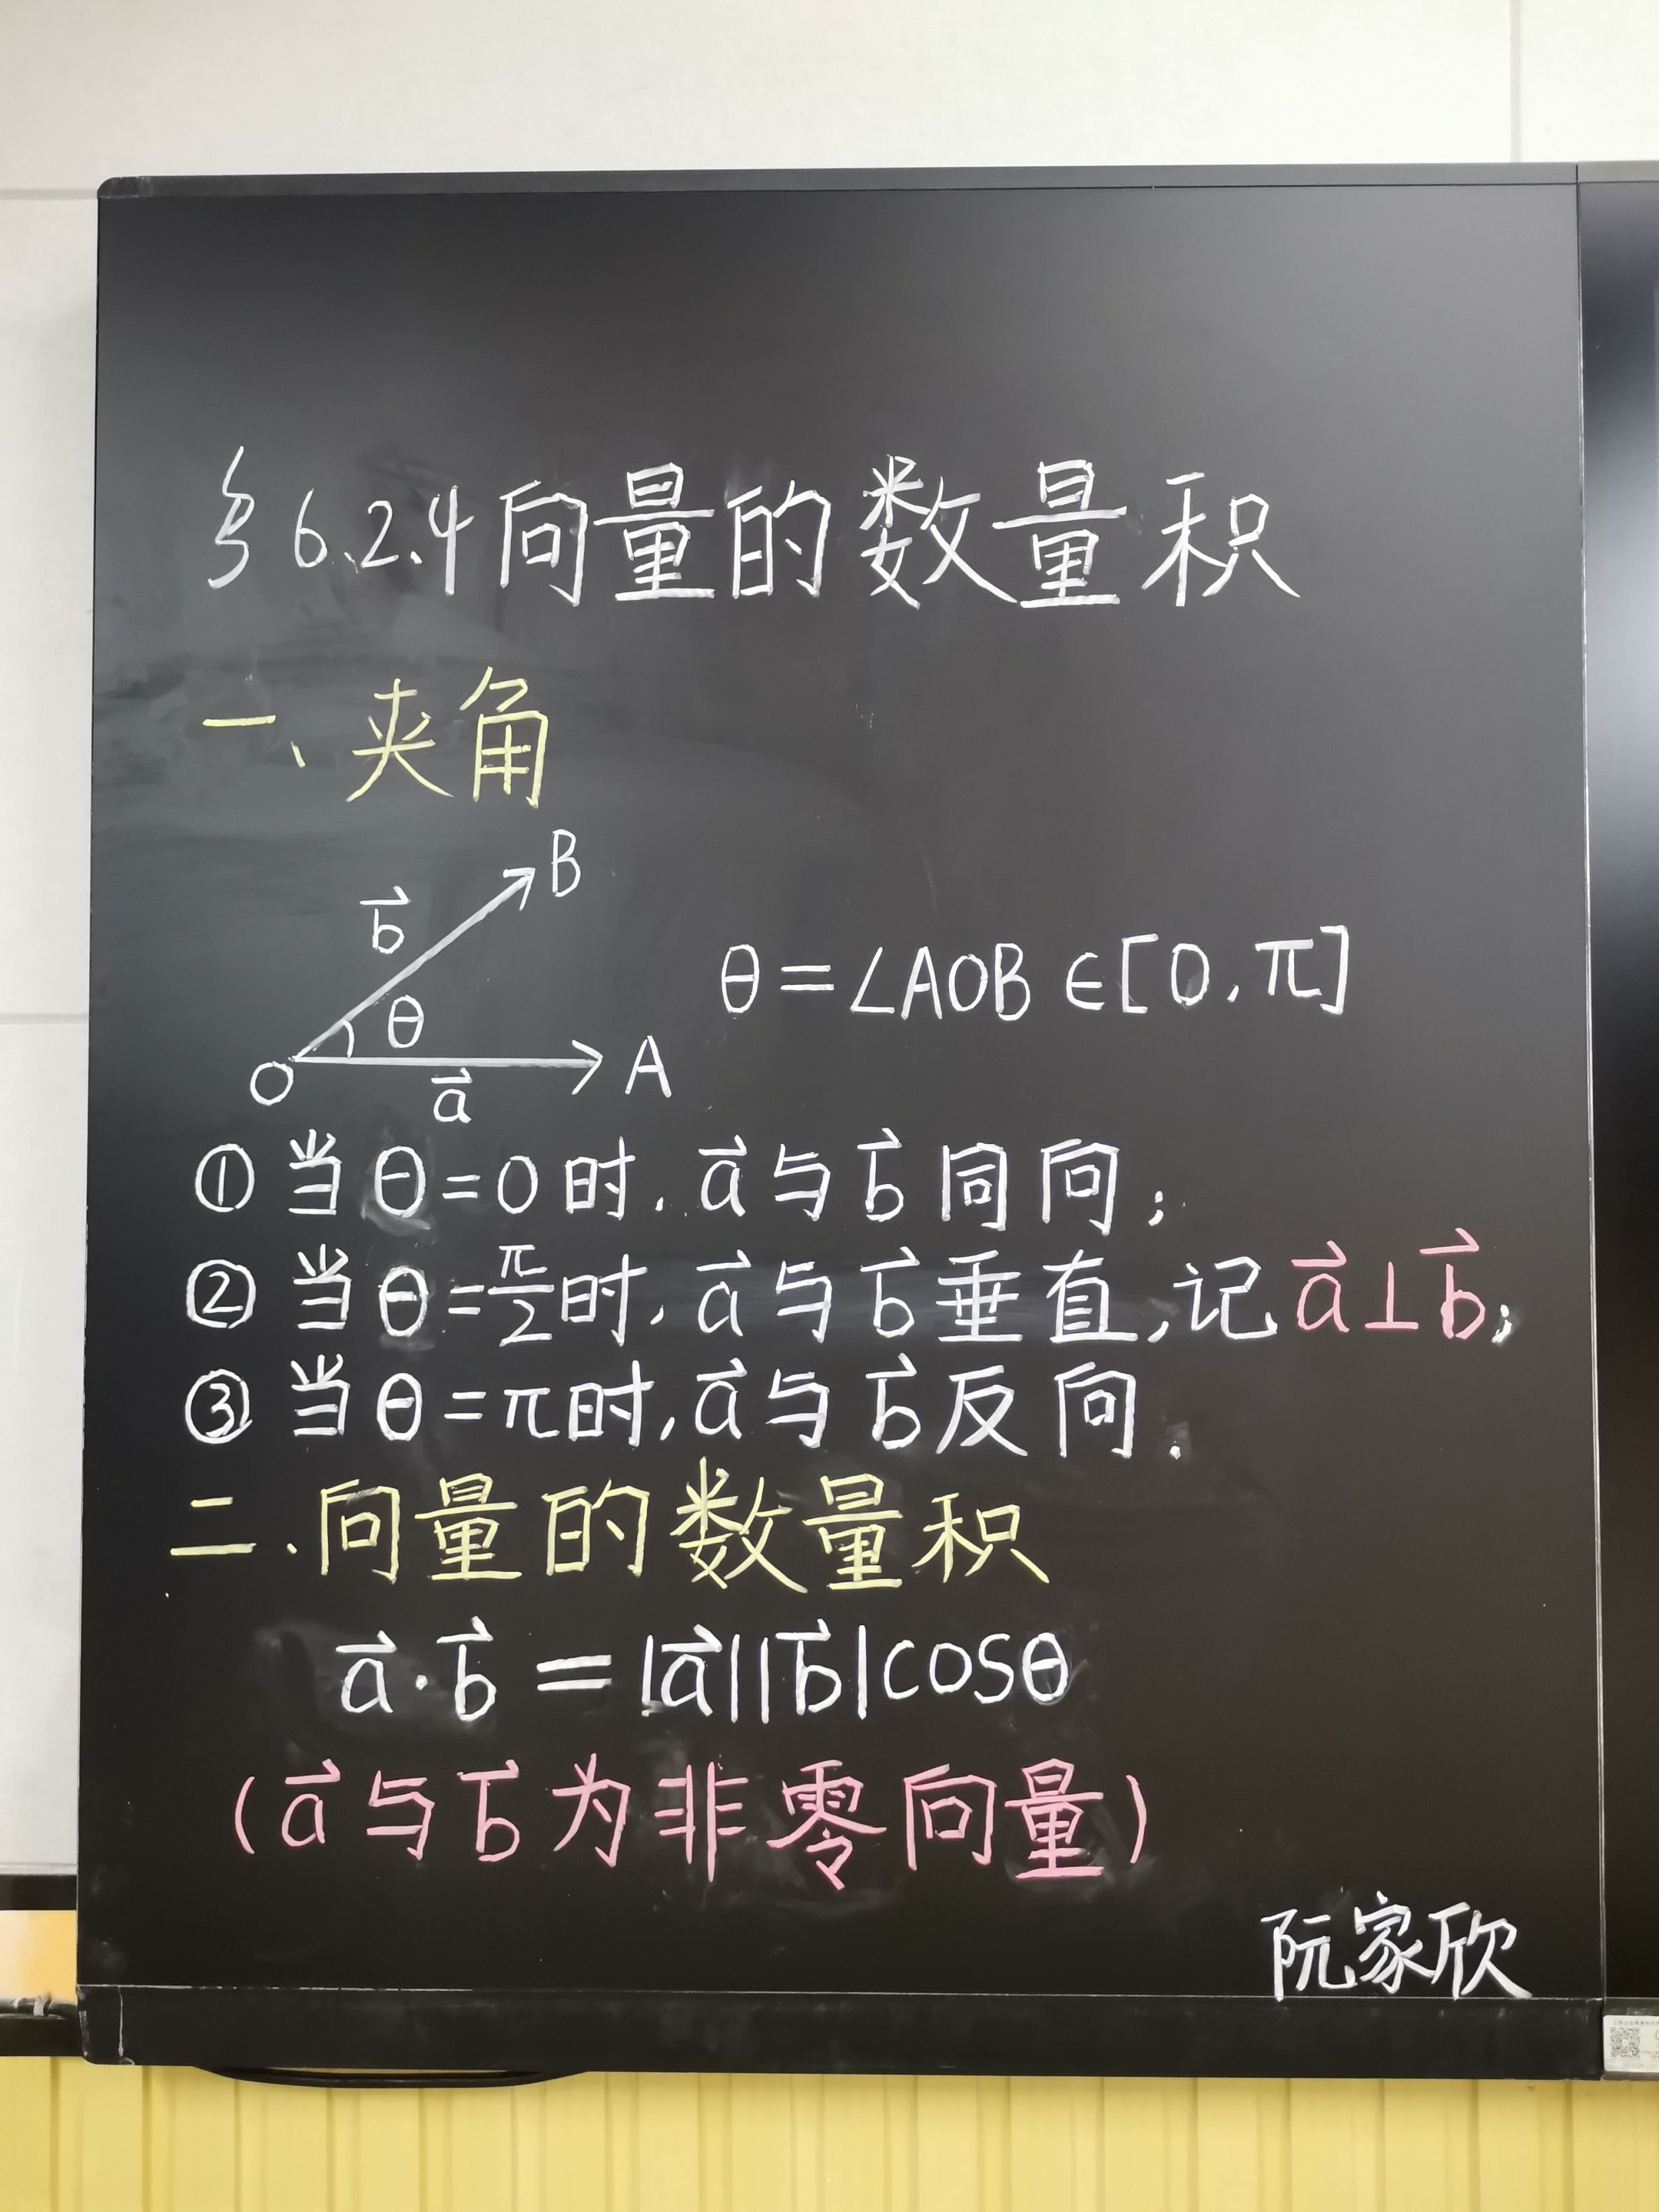 §6.2.4向量的数量积
一、夹角
B
b⃗
θ
θ=∠AOB∈[0,π]
O
A
a⃗
①当θ=0时,a⃗与b⃗同向;
②当θ=π/2时,a⃗与b⃗垂直,记a⃗⊥b⃗;
③当θ=π时,a⃗与b⃗反向.
二.向量的数量积
a⃗·b⃗=|a⃗||b⃗|cosθ
(a⃗与b⃗为非零向量)
阮家欣